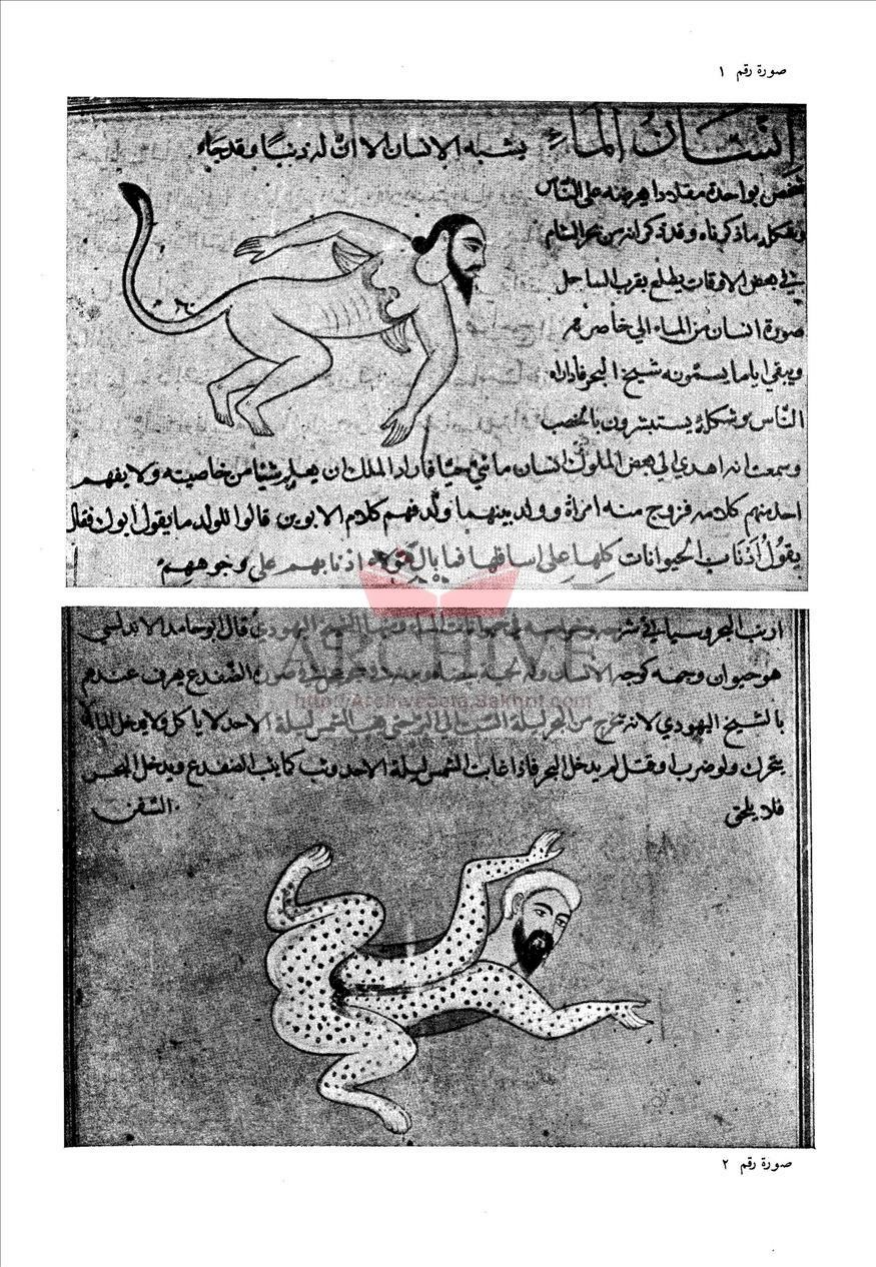 صورة رقم ١
انسان الماء يشبه الانسان الا ان له ذنبا وقد جاء
شخص بواحدة مقدداً يعرضه على الناس
وشكله ما ذكرناه وقد ذكر انه من بحر الشام
في بعض الاوقات يطلع بقرب الساحل
صورة انسان من الماء الى خاصرهم
ويبقى اياما يسمونه شيخ البحر فاذا راه
الناس وشكله يستبشرون بالخصب
وسمعت انه اهدي الى بعض الملوك انسان مائي حيا فاراد الملك ان يعلم شيئا من خاصيته ولا يفهم
احد منهم كلامه فزوج منه امراة وولد بينهما ولد فهم كلام الابوين قالوا للولد ما يقول ابوك فقال
يقول اذناب الحيوانات كلها على اسافلها فما بال هؤلاء اذنابهم على وجوههم
ارنب البحر وسياتي شرحه وخواصه في حيوانات الماء ومنها الشيخ اليهودي قال ابو حامد الاندلسي
هو حيوان وجهه كوجه الانسان وله لحية بيضاء صورة الضفدع يعرف عندهم
بالشيخ اليهودي لانه تخرج من البحر ليلة السبت الى ان تغيب الشمس ليلة الاحد لا ياكل ولا يدخل الماء
يتحرك ولو ضرب او قتل لم يدخل البحر فاذا غابت الشمس ليلة الاحد وثب كما يثب الضفدع ويدخل البحر
فلا يلحق السفن
ARCHIVE
http://Archivebeta.Sakhrit.com
صورة رقم ٢